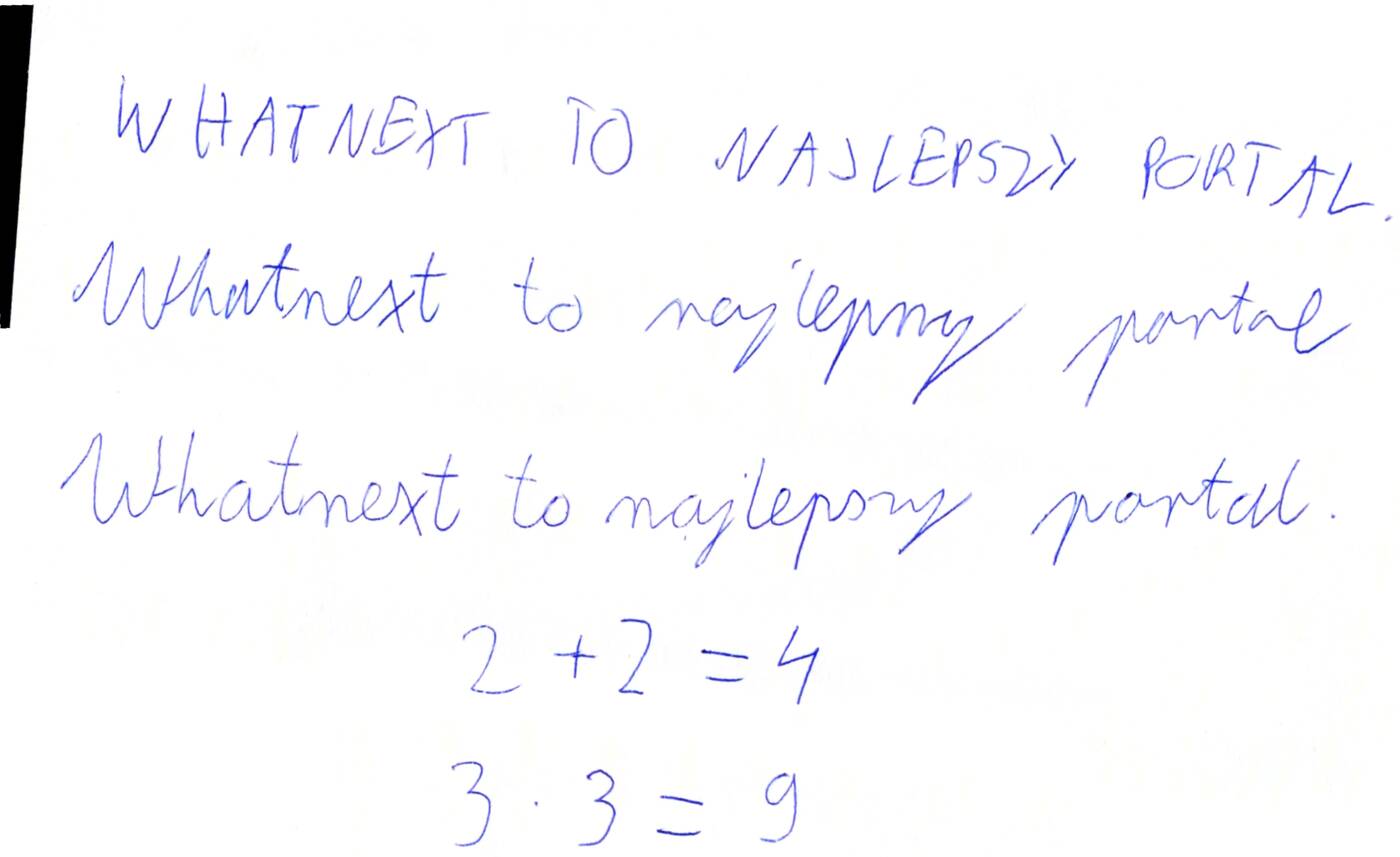 WHATNEXT TO NAJLEPSZY PORTAL.
Whatnext to najlepszy portal
Whatnext to najlepszy portal.
2 + 2 = 4
3 · 3 = 9